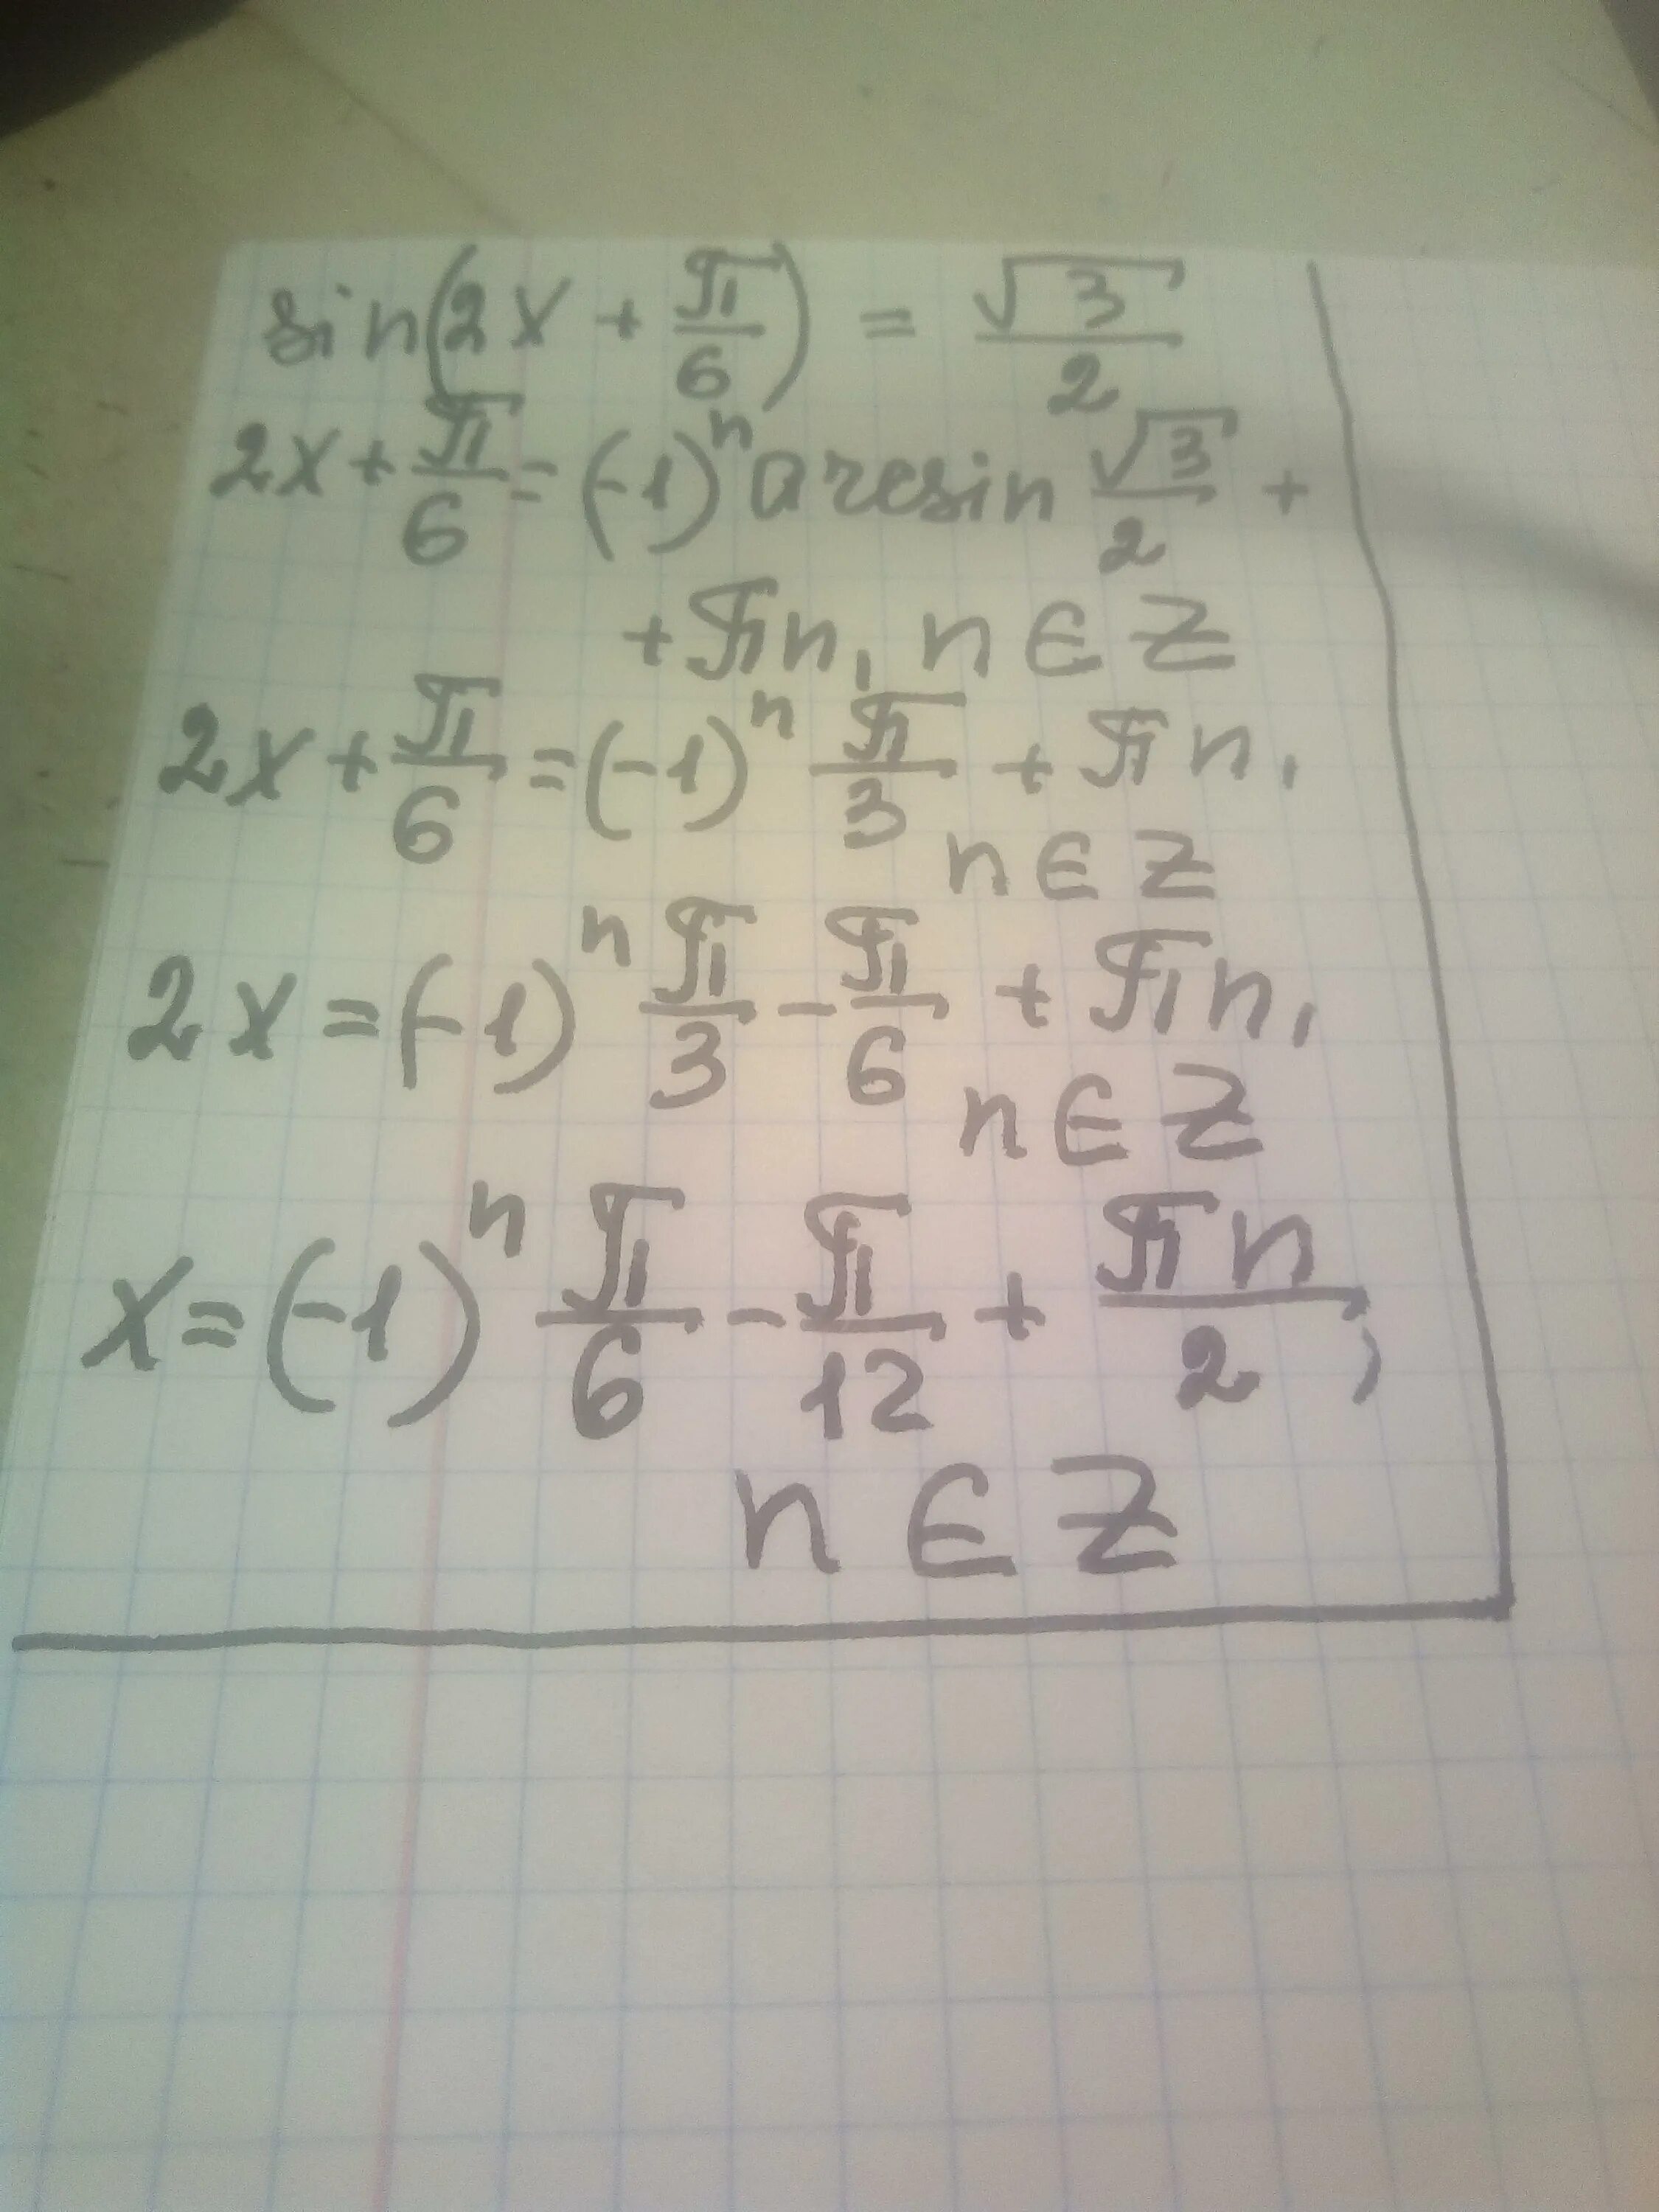 sin(2x + π/6) = √3/2
2x + π/6 = (-1)ⁿ arcsin √3/2 +
+ πn, n ∈ Z
2x + π/6 = (-1)ⁿ π/3 + πn,
n ∈ Z
2x = (-1)ⁿ π/3 - π/6 + πn,
n ∈ Z
x = (-1)ⁿ π/6 - π/12 + πn/2,
n ∈ Z